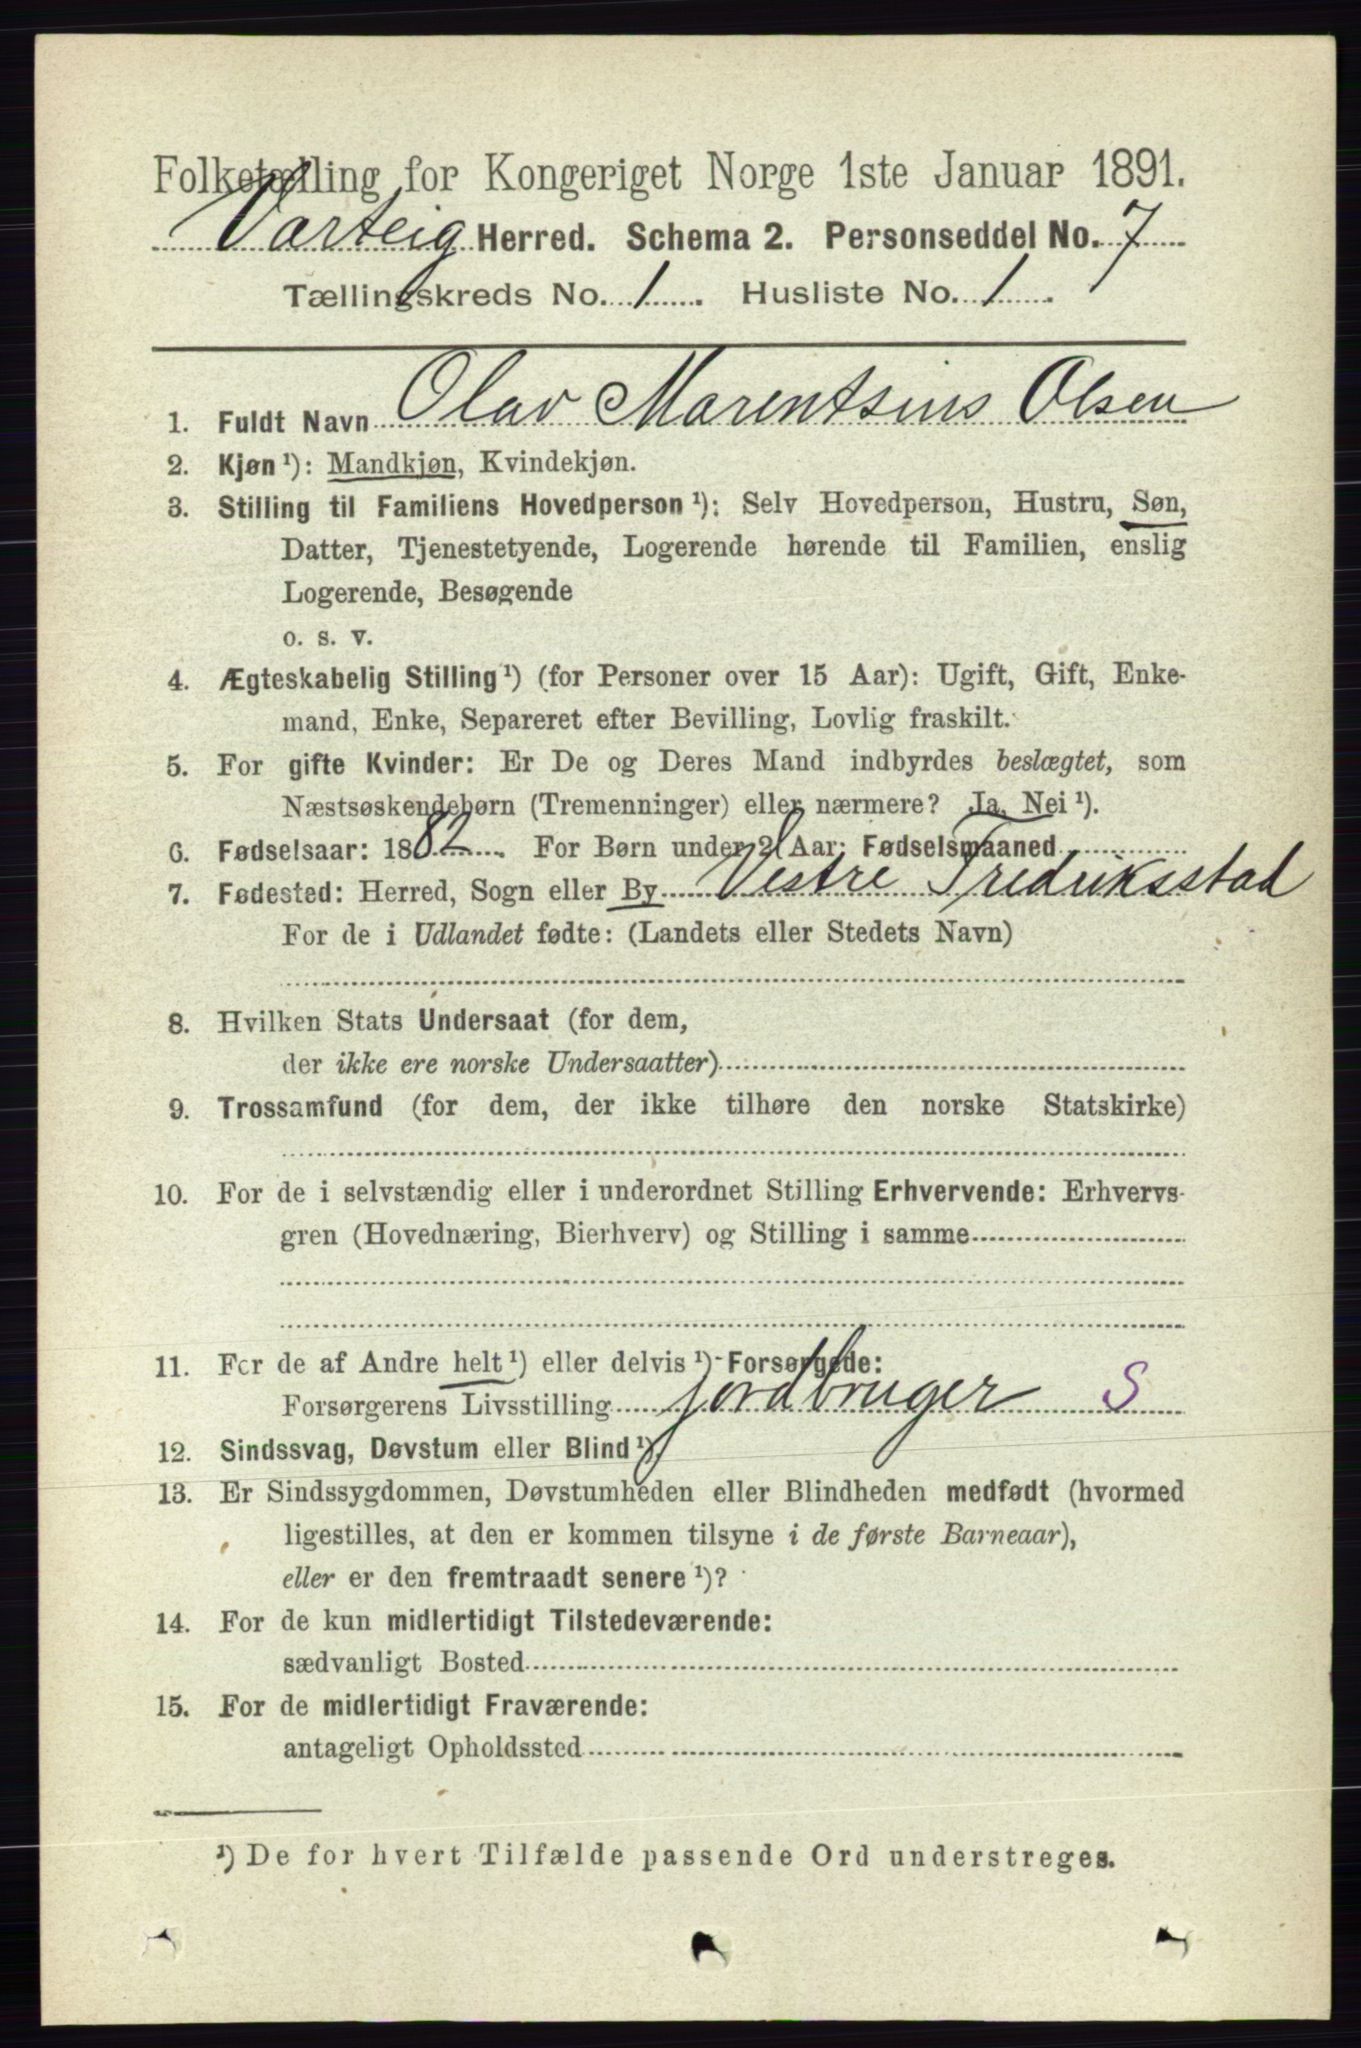 Folketælling for Kongeriget Norge 1ste Januar 1891.
Varteig Herred. Schema 2. Personseddel No. 7
Tællingskreds No. 1. Husliste No. 1.
1. Fuldt Navn Olav Marentsins Olsen
2. Kjøn ¹): Mandkjøn, Kvindekjøn.
3. Stilling til Familiens Hovedperson ¹): Selv Hovedperson, Hustru, Søn,
Datter, Tjenestetyende, Logerende hørende til Familien, enslig
Logerende, Besøgende
o. s. v.
4. Ægteskabelig Stilling ¹) (for Personer over 15 Aar): Ugift, Gift, Enke-
mand, Enke, Separeret efter Bevilling, Lovlig fraskilt.
5. For gifte Kvinder: Er De og Deres Mand indbyrdes beslægtet, som
Næstsøskendebørn (Tremenninger) eller nærmere? Ja, Nei ¹).
6. Fødselsaar: 1882. For Børn under 2 Aar: Fødselsmaaned
7. Fødested: Herred, Sogn eller By Vestre Fredriksstad
For de i Udlandet fødte: (Landets eller Stedets Navn)
8. Hvilken Stats Undersaat (for dem,
der ikke ere norske Undersaatter)
9. Trossamfund (for dem, der ikke tilhøre den norske Statskirke)
10. For de i selvstændig eller i underordnet Stilling Erhvervende: Erhvervs-
gren (Hovednæring, Bierhverv) og Stilling i samme
11. For de af Andre helt ¹) eller delvis ¹) Forsørgede:
Forsørgerens Livsstilling jordbruger S
12. Sindssvag, Døvstum eller Blind ¹)
13. Er Sindssygdommen, Døvstumheden eller Blindheden medfødt (hvormed
ligestilles, at den er kommen tilsyne i de første Barneaar),
eller er den fremtraadt senere ¹)?
14. For de kun midlertidigt Tilstedeværende:
sædvanligt Bosted
15. For de midlertidigt Fraværende:
antageligt Opholdssted
¹) De for hvert Tilfælde passende Ord understreges.